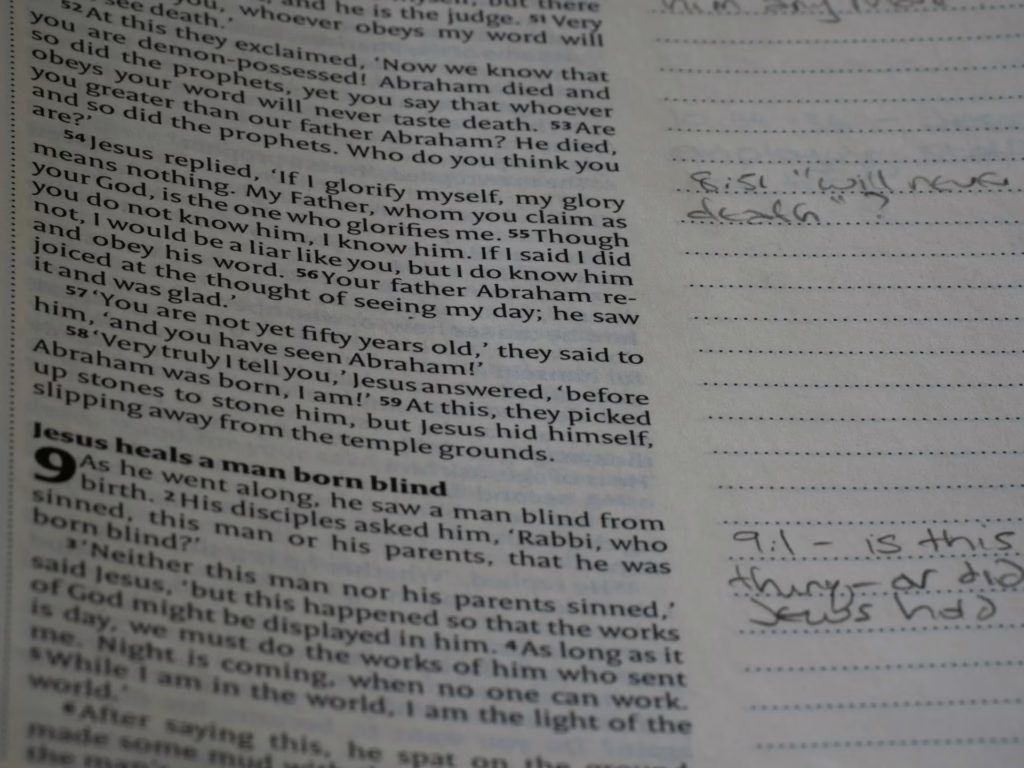 and he is the judge. 51 Very
you, whoever obeys my word will
see death.'
52 At this they exclaimed, 'Now we know that
you are demon-possessed! Abraham died and
so did the prophets, yet you say that whoever
obeys your word will never taste death. 53 Are
you greater than our father Abraham? He died,
and so did the prophets. Who do you think you
are?'
54 Jesus replied, 'If I glorify myself, my glory
means nothing. My Father, whom you claim as
your God, is the one who glorifies me. 55 Though
you do not know him, I know him. If I said I did
not, I would be a liar like you, but I do know him
and obey his word. 56 Your father Abraham re-
joiced at the thought of seeing my day; he saw
it and was glad.'
57 'You are not yet fifty years old,' they said to
him, 'and you have seen Abraham!'
58 'Very truly I tell you,' Jesus answered, 'before
Abraham was born, I am!' 59 At this, they picked
up stones to stone him, but Jesus hid himself,
slipping away from the temple grounds.
Jesus heals a man born blind
9 As he went along, he saw a man blind from
birth. 2 His disciples asked him, 'Rabbi, who
sinned, this man or his parents, that he was
born blind?'
3 'Neither this man nor his parents sinned,'
said Jesus, 'but this happened so that the works
of God might be displayed in him. 4 As long as it
is day, we must do the works of him who sent
me. Night is coming, when no one can work.
5 While I am in the world, I am the light of the
world.'
6 After saying this, he spat on the ground
made some mud with
the man's
him any
8:51 "will never
death"?
9:1 - is this
thing - or did
Jews had